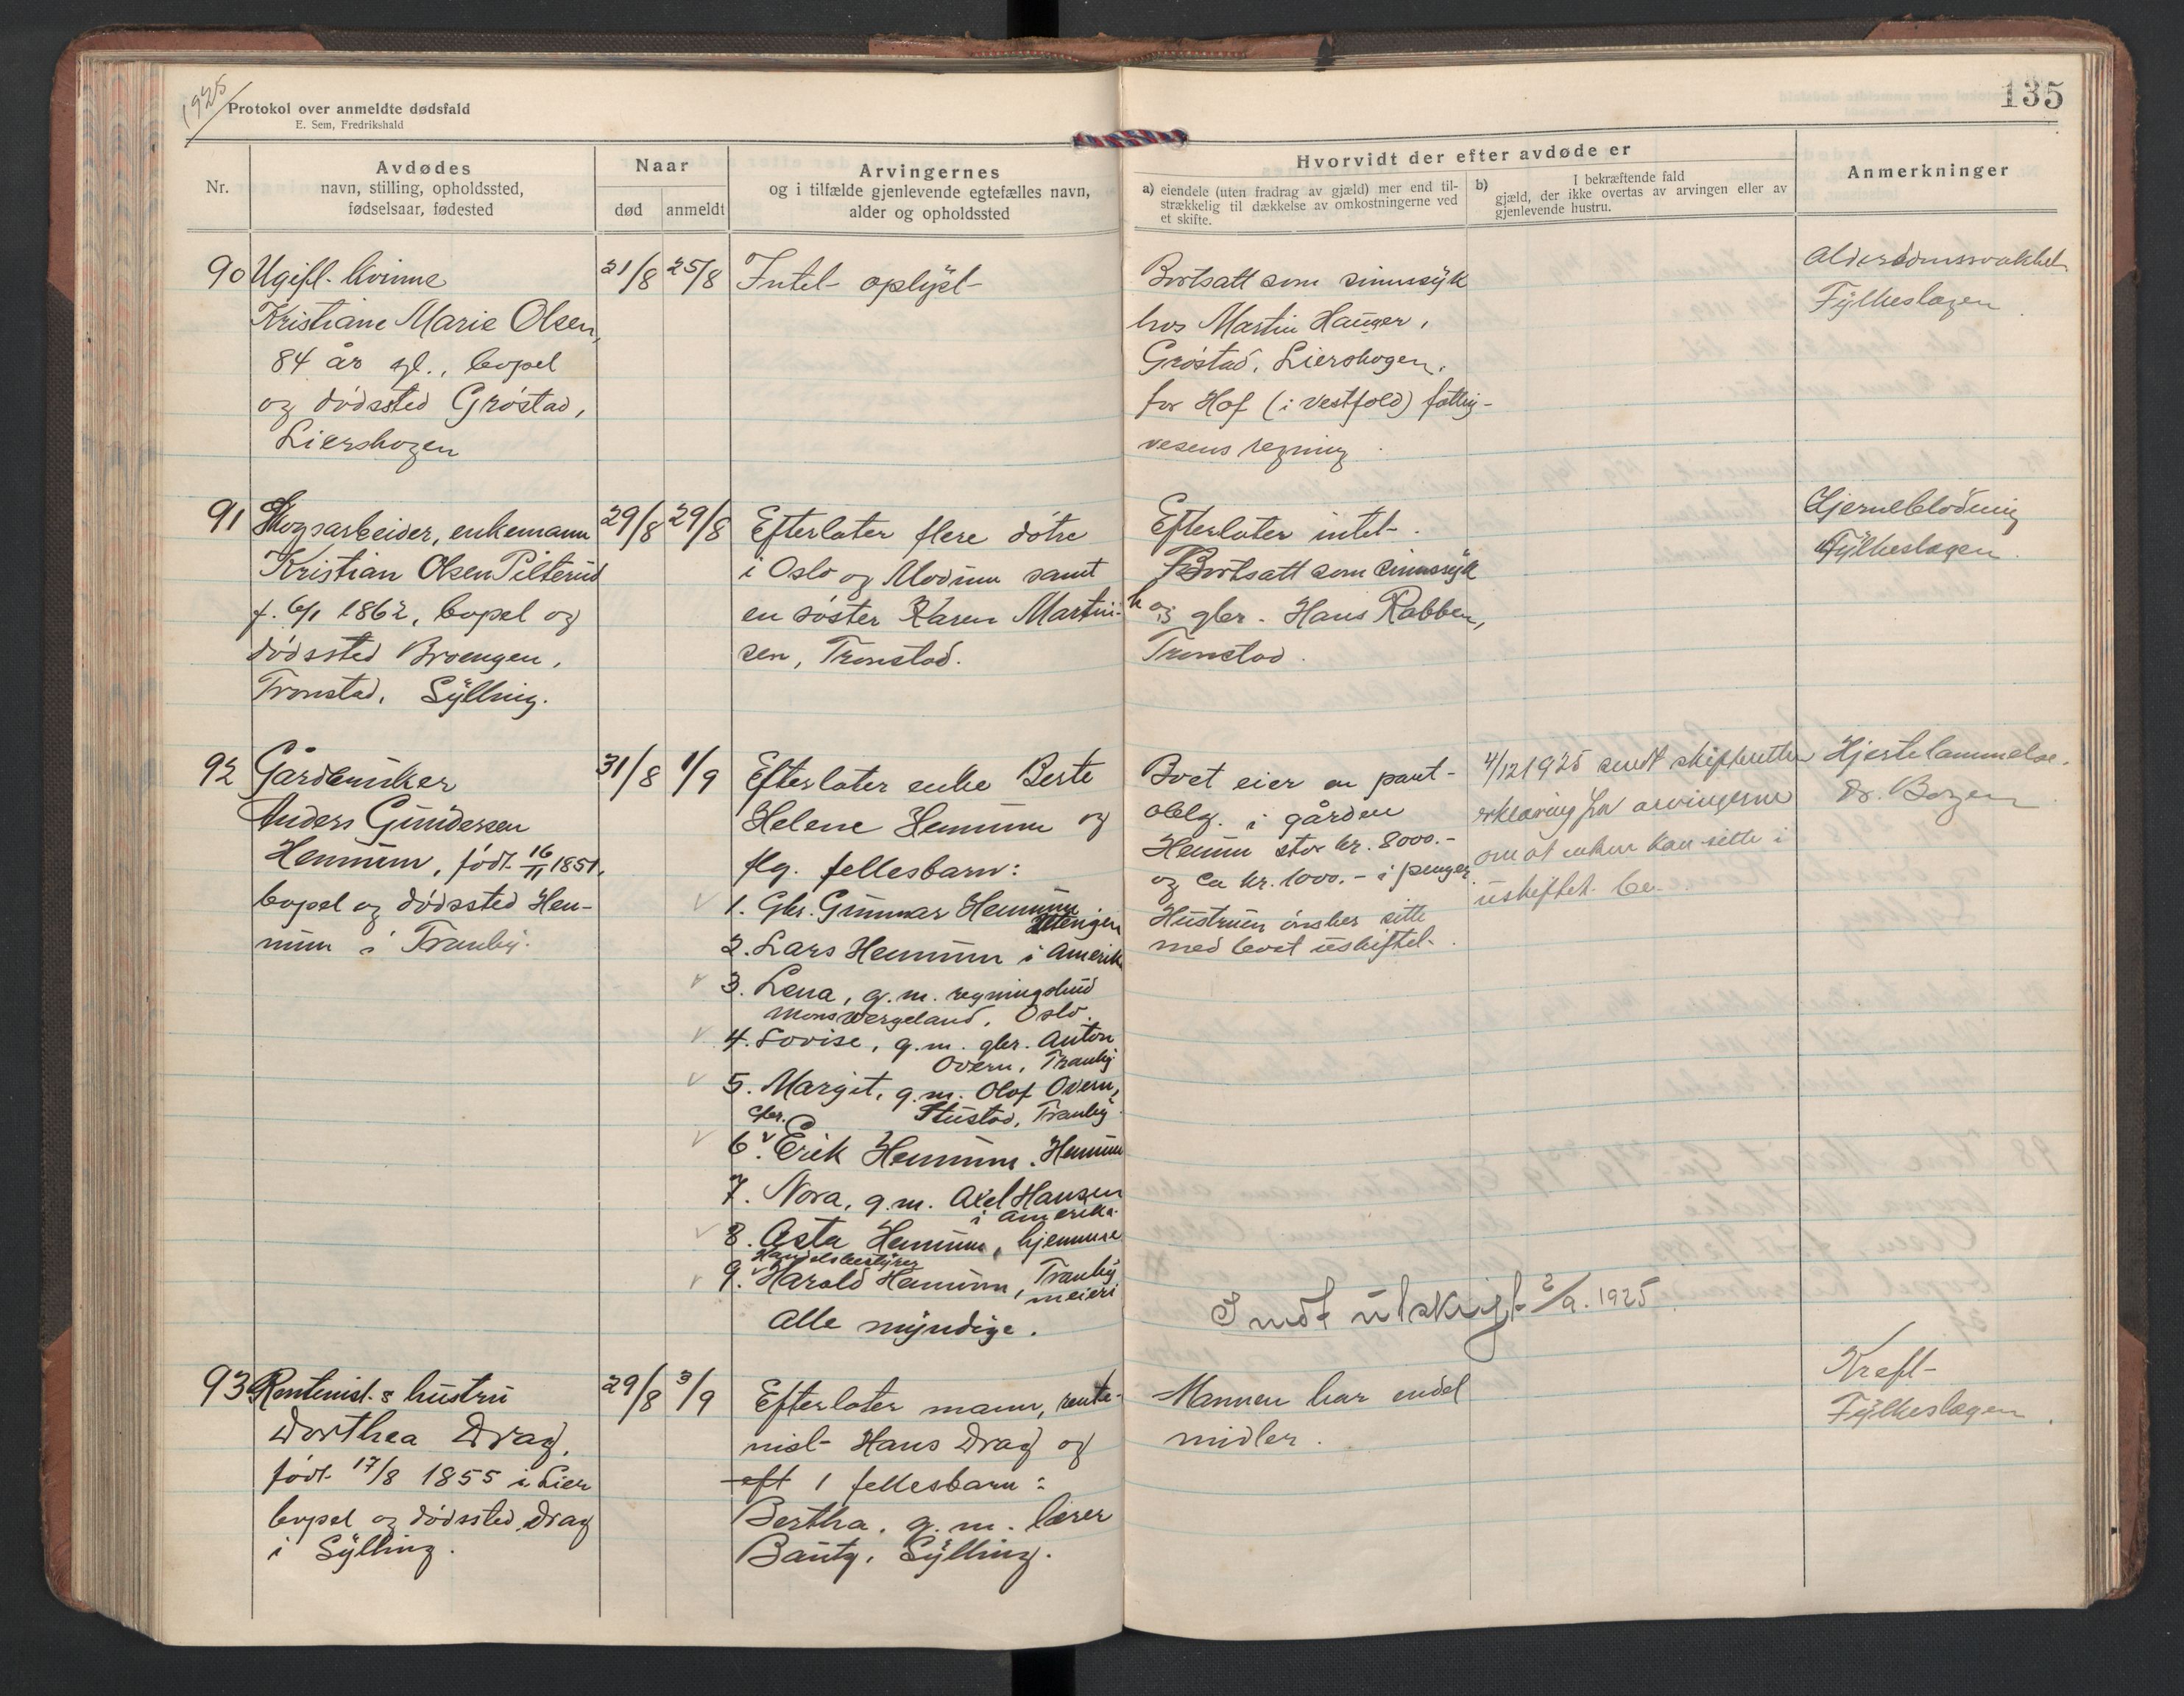 1925
Protokol over anmeldte dødsfald
E. Sem, Fredrikshald
135
Nr.
Avdødes
navn, stilling, opholdssted,
fødselsaar, fødested
Naar
død
anmeldt
Arvingernes
og i tilfælde gjenlevende egtefælles navn,
alder og opholdssted
Hvorvidt der efter avdøde er
a) eiendele (uten fradrag av gjæld) mer end til-
strækkelig til dækkelse av omkostningerne ved
et skifte.
b) I bekræftende fald
gjæld, der ikke overtas av arvingen eller av
gjenlevende hustru.
Anmerkninger
90
Ugift kvinne
Kristiane Marie Olsen,
84 år gl., bopel
og dødssted Grøstad,
Lierskogen
21/8
25/8
Intet oplyst
Bortsatt som sinnssyk
hos Martin Hauger,
Grøstad, Lierskogen,
for Hof (i Vestfold) fattig-
vesens regning
Alderdomssvakhet
Fylkeslægen
91
Skogsarbeider, enkemann
Kristian Olsen Pilterud
f. 6/1 1862, bopel og
dødssted Broengen,
Tronstad, Sylling.
29/8
29/8
Efterlater flere døtre
i Oslo og Modum samt
en søster Karen Martin-
sen, Tronstad.
Efterlater intet.
Bortsatt som sinnssyk
hos gbr. Hans Rabben,
Tronstad.
Hjerneblødning
Fylkeslægen.
92
Gårdbruker
Anders Gundersen
Hennum, født 16/11 1851,
bopel og dødssted Hen-
num i Tranby.
31/8
1/9
Efterlater enke Berte
Helene Hennum og
flg. fellesbarn:
1. Gbr. Gunnar Hennum
Utengen
2. Lars Hennum i Amerika
3. Lena, g.m. regningsbud
Mons Wergeland, Oslo.
4. Lovise, g.m. gbr. Anton
Overn, Tranby
5. Margit, g.m. Olof Overn,
Stustad, Tranby
gbr.
6. Erik Hennum, Hennum
7. Nora, g.m. Axel Hansen
i Amerika.
8. Asta Hennum, hjemme
Handelsbestyrer
9. Harald Hennum, Tranby
meieri
Alle myndige.
Boet eier en pant-
oblg. i gården
Hennum stor kr. 8000.-
og ca kr. 1000.- i penger.
Hustruen ønsker sitte
med boet uskiftet.
4/12 1925 sendt skifteretten
erklæring fra arvingerne
om at enken kan sitte i
uskiftet bo.
Hjertelammelse.
Dr. Borgen
Sendt utskrift 2/9. 1925
93
Rentenist.s hustru
Dorthea Drag,
født 17/8 1855 i Lier
bopel og dødssted Drag
i Sylling.
29/8
3/9
Efterlater mann, rente-
nist Hans Drag og
eft 1 fellesbarn:
Bertha, g.m. lærer
Sylling.
Mannen har endel
midler.
Kreft
Fylkeslægen.